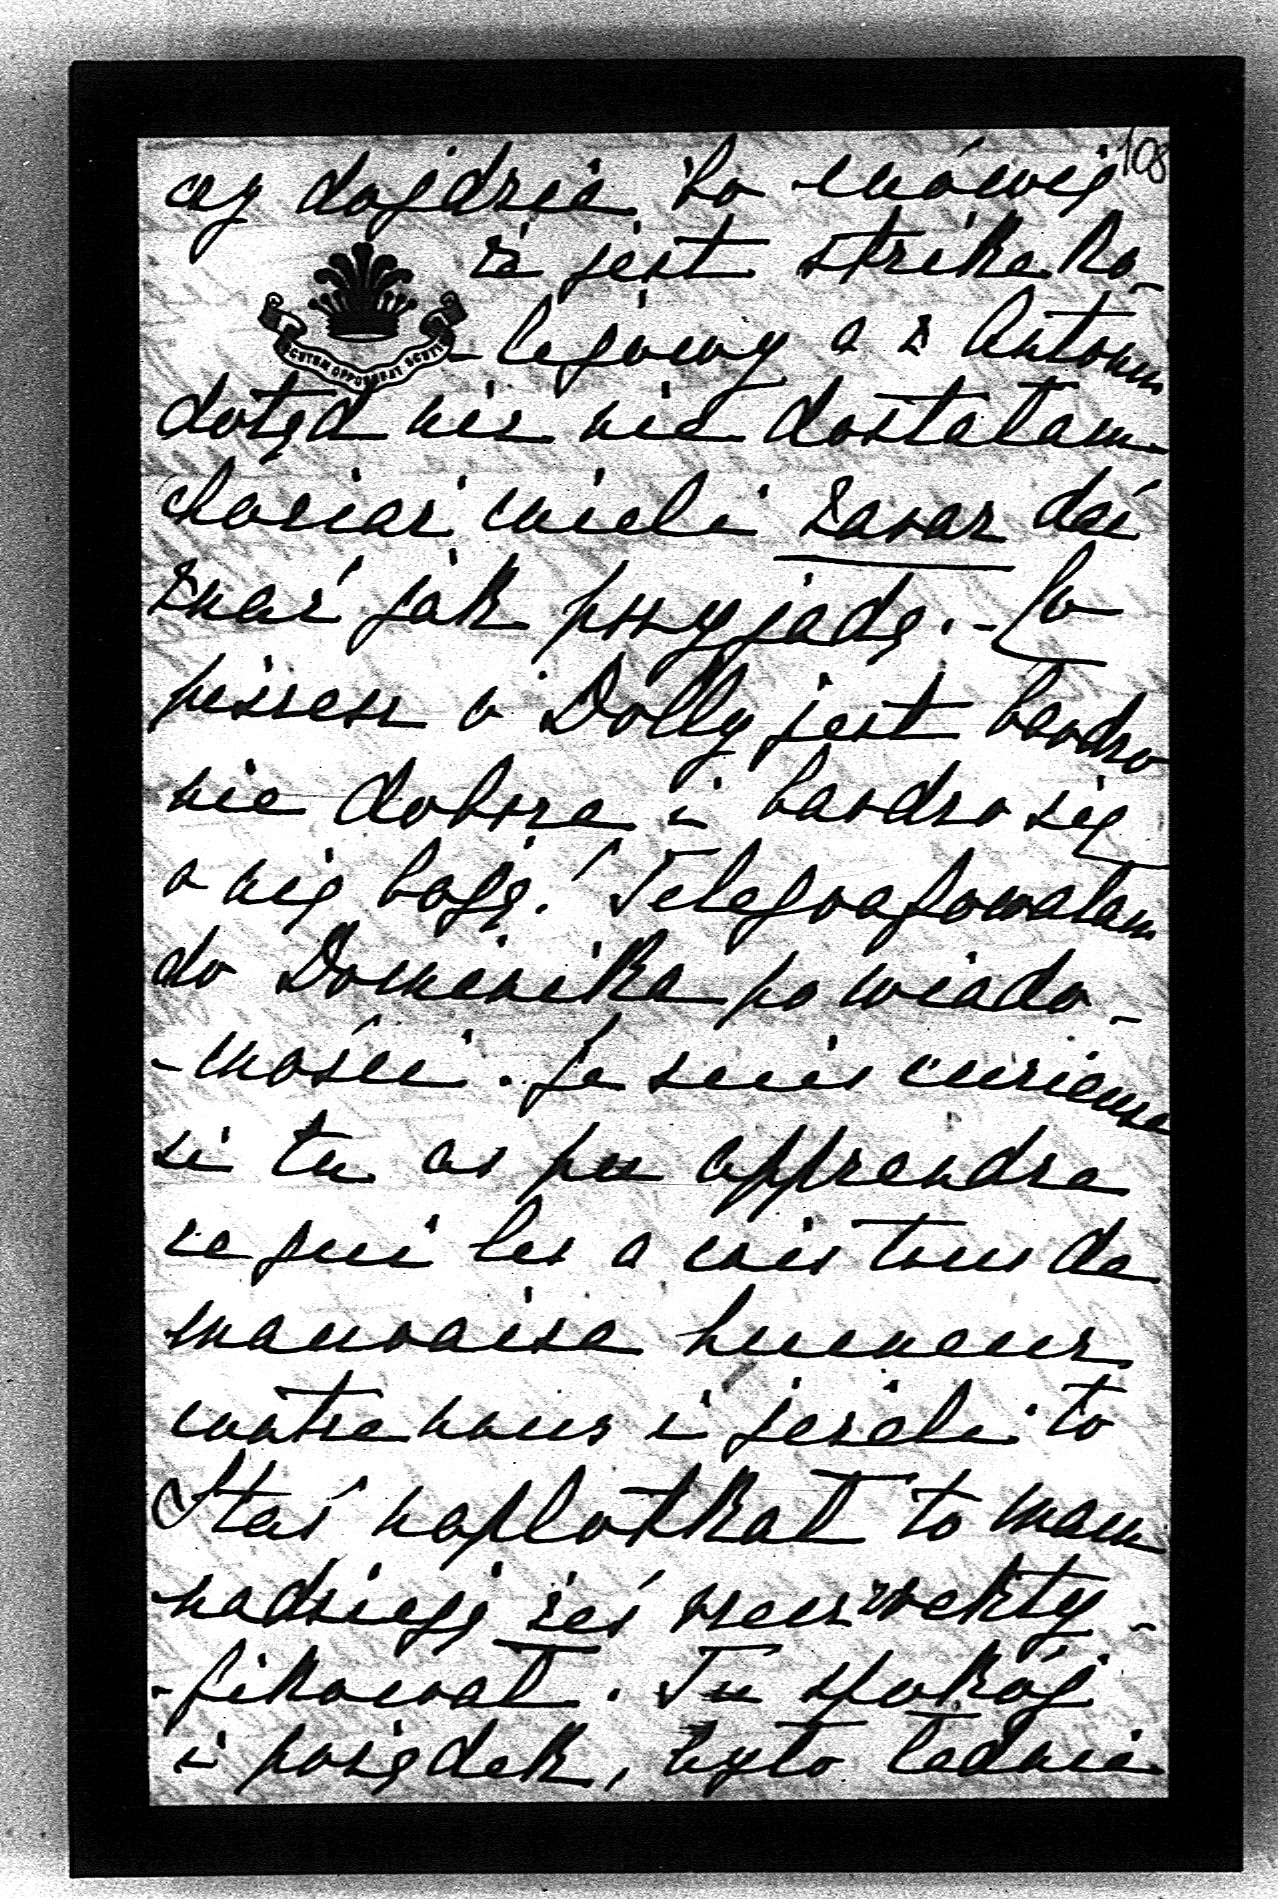 108
czy dojdzie, bo mówią
że jest strike ko-
SCUTUM OPPONEBAT SCUTIS
-lejowy a z Antonin
dotąd nic nie dostałam
chociaż mieli zaraz dać
znać jak przyjadą. - Co
piszesz o Dolly jest bardzo
nie dobrze i bardzo się
o nią boję! Telegrafowałam
do Dominika po wiado-
-mości. Je suis curieuse
si tu as pu apprendre
ce qui les a mis tous de
mauvaise humeur
contre nous i jeżeli to
Staś naplotkał to mam
nadzieję żeś rekty-
-fikował. Tu spokój
i porządek, żyto ładnie